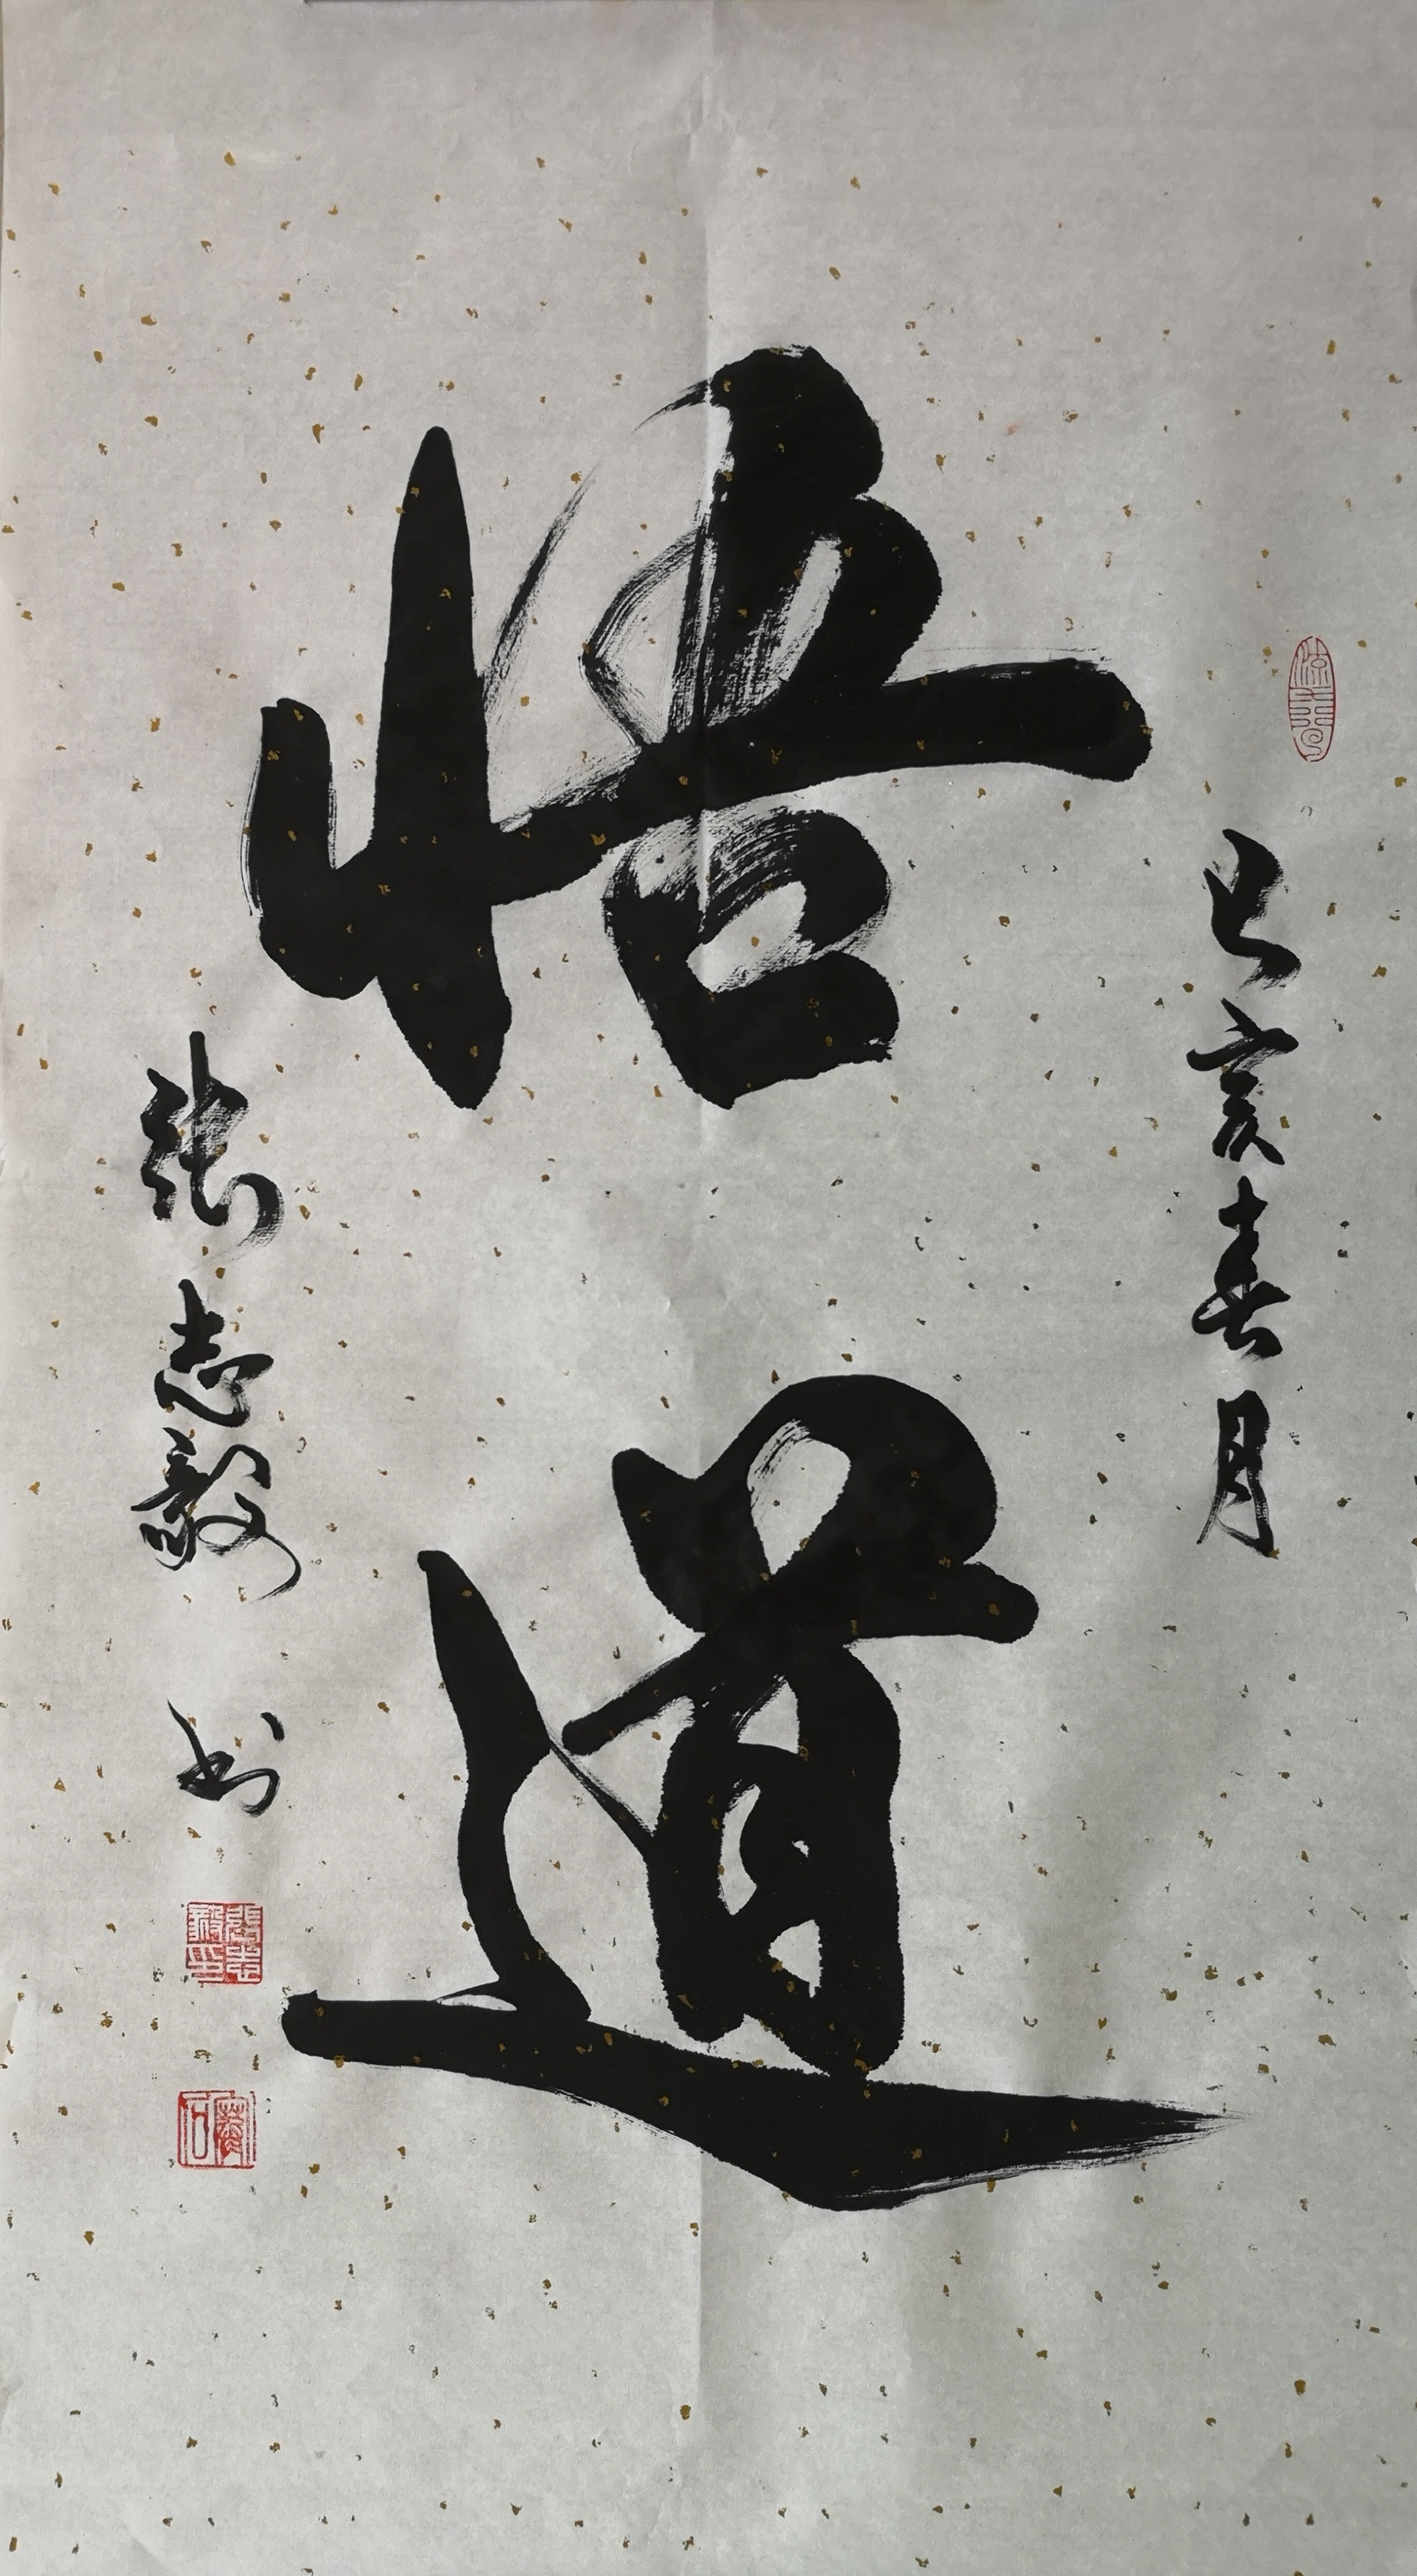 己亥春月
悟道
張志毅书
張志毅印